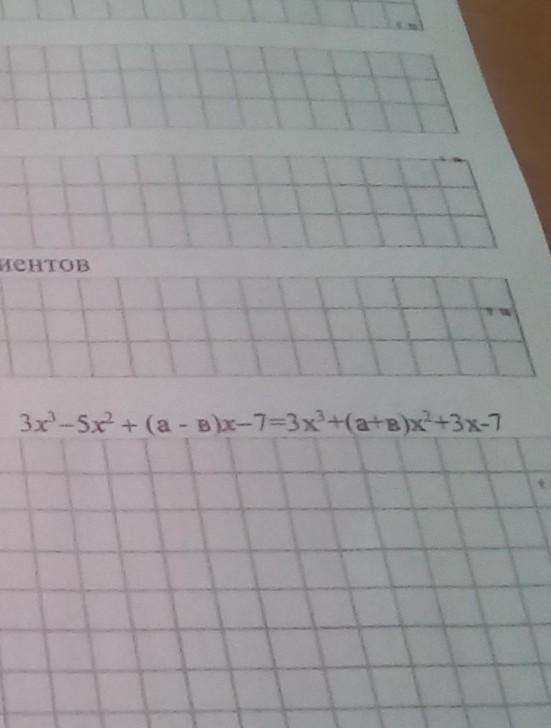 иентов
3x³–5x² + (а - в)x–7=3x³+(а+в)x²+3x-7